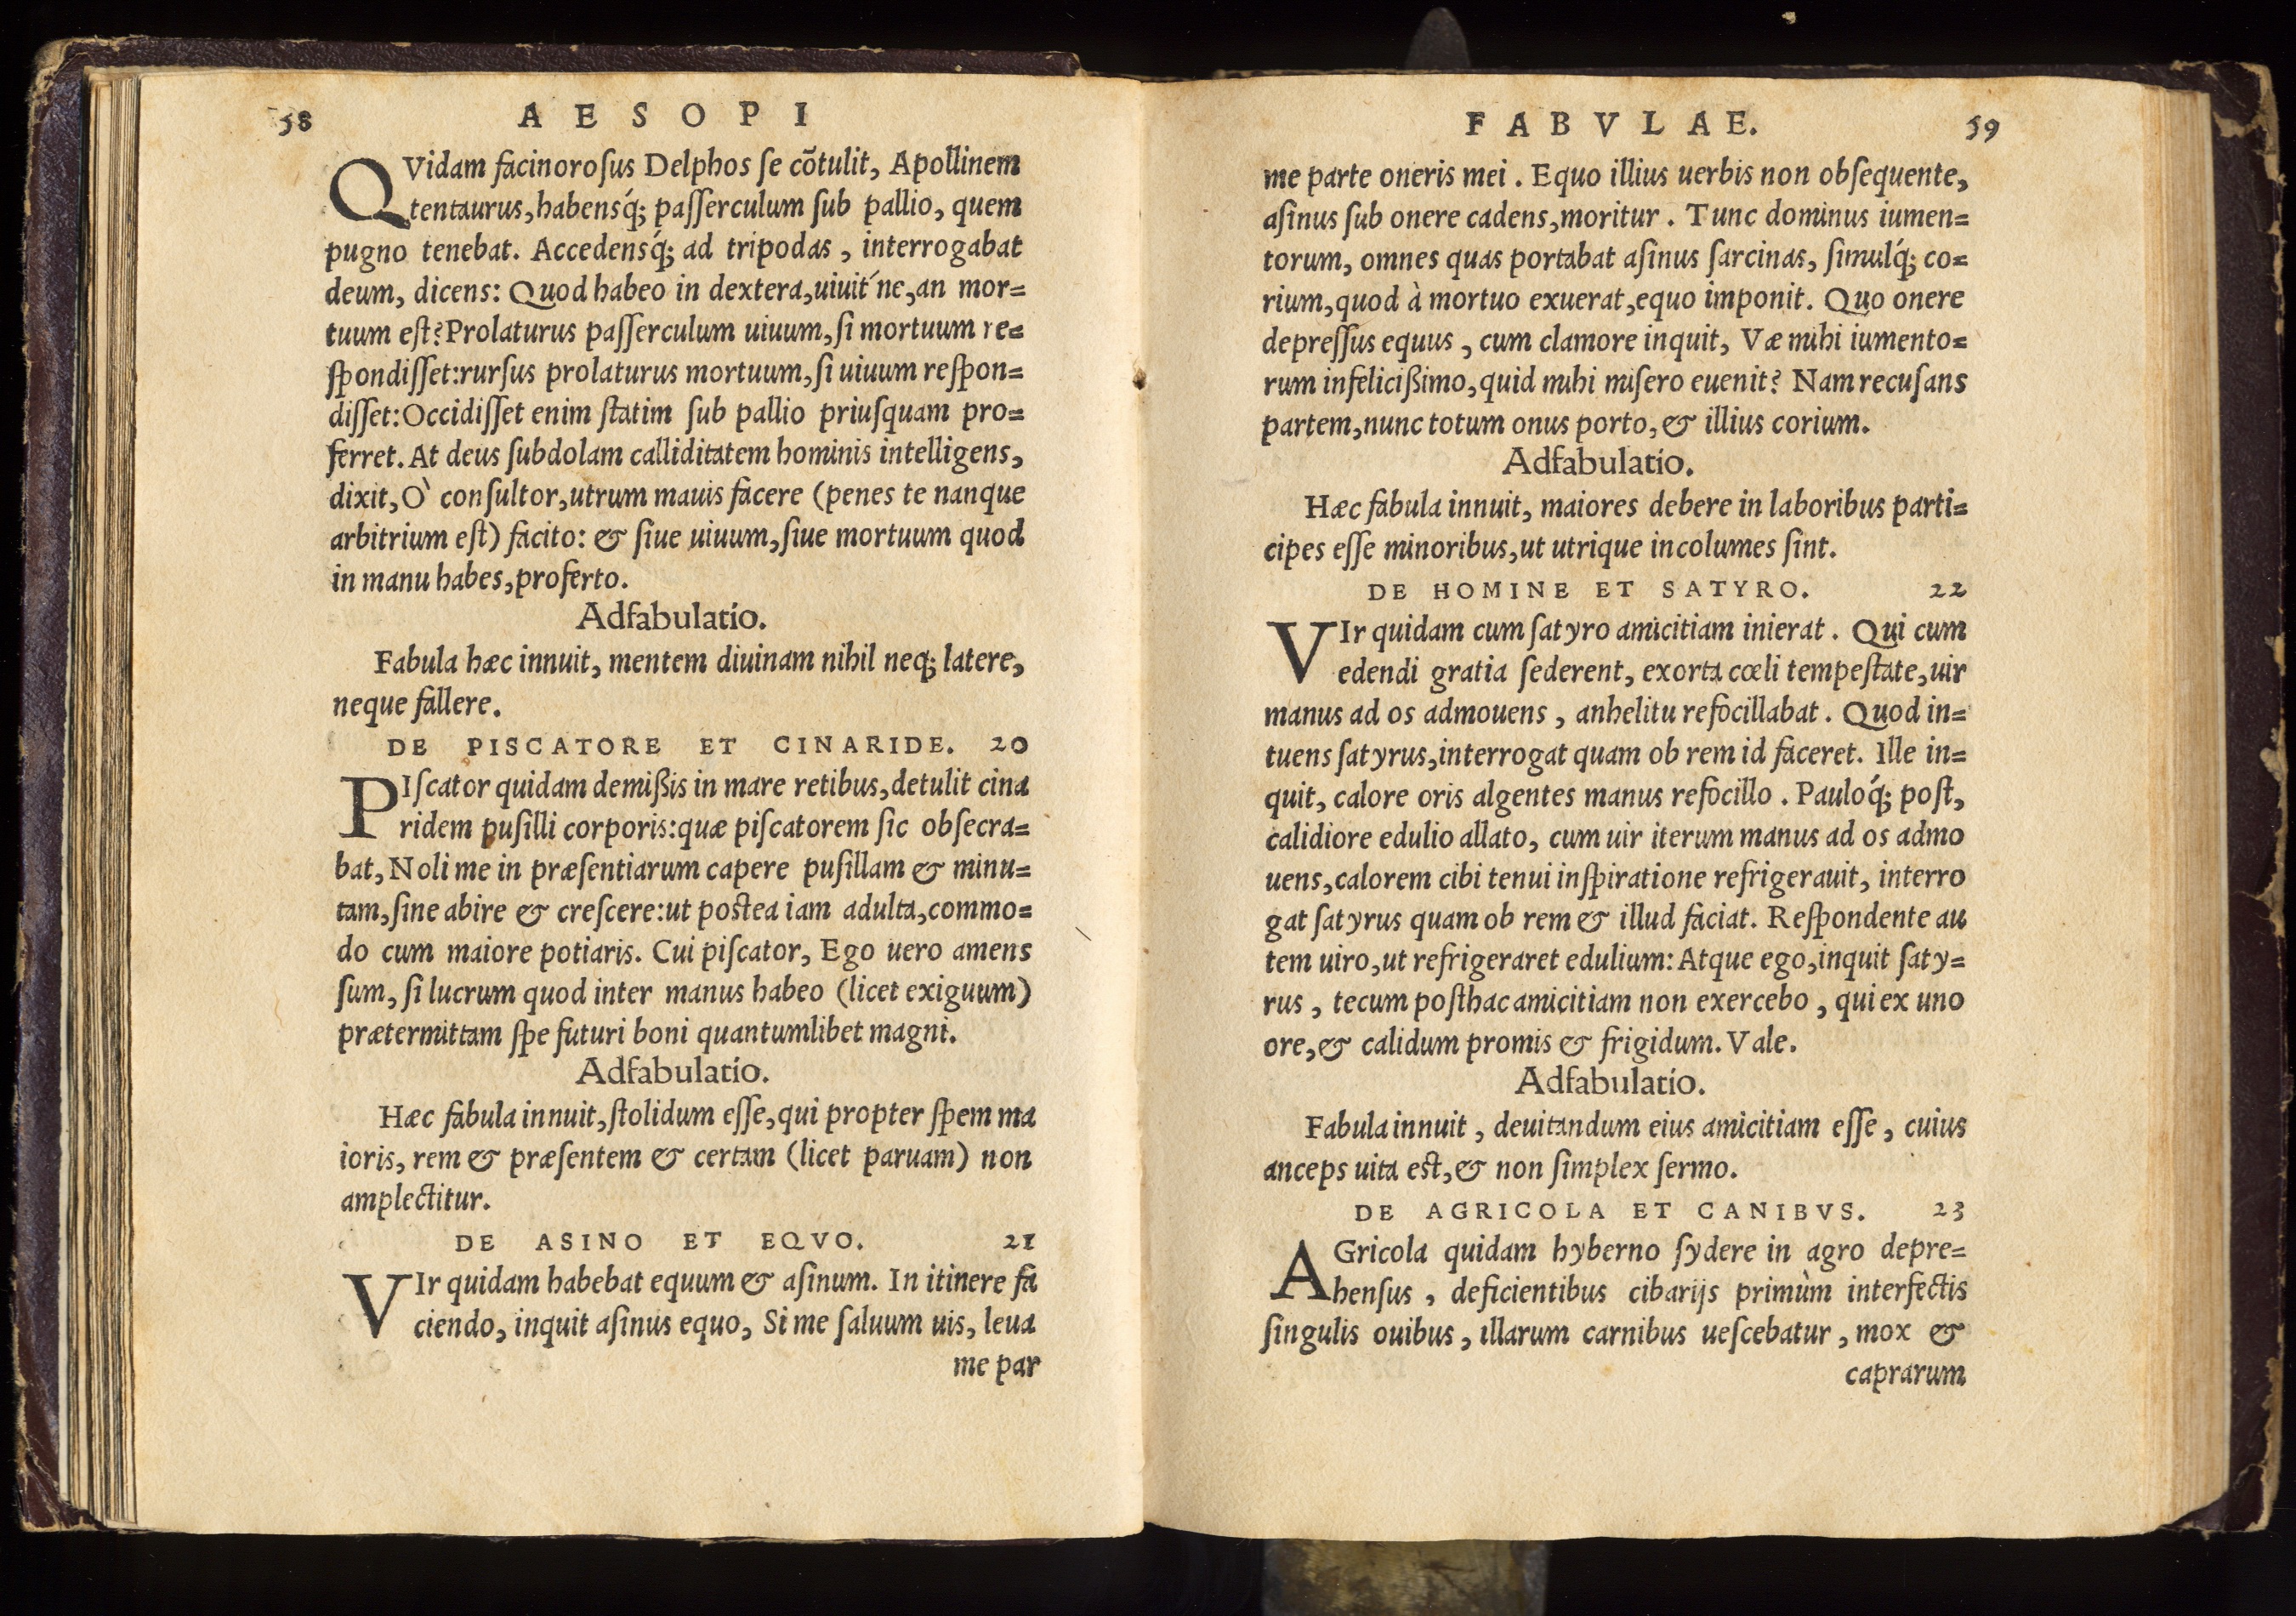 58 AESOPI
QVidam facinoroſus Delphos ſe cõtulit, Apollinem
tentaurus, habensq́; paſſerculum ſub pallio, quem
pugno tenebat. Accedensq́; ad tripodas, interrogabat
deum, dicens: Quod habeo in dextera, uiuit´ne, an mor=
tuum eſt? Prolaturus paſſerculum uiuum, ſi mortuum re=
ſpondiſſet: rurſus prolaturus mortuum, ſi uiuum reſpon=
diſſet: Occidiſſet enim ſtatim ſub pallio priuſquam pro=
ferret. At deus ſubdolam calliditatem hominis intelligens,
dixit, Ò conſultor, utrum mauis facere (penes te nanque
arbitrium eſt) facito: & ſiue uiuum, ſiue mortuum quod
in manu habes, proferto.
Adfabulatio.
Fabula hæc innuit, mentem diuinam nihil neq; latere,
neque fallere.
DE PISCATORE ET CINARIDE. 20
PIſcator quidam demißis in mare retibus, detulit cina
ridem puſilli corporis: quæ piſcatorem ſic obſecra=
bat, Noli me in præſentiarum capere puſillam & minu=
tam, ſine abire & creſcere: ut poſtea iam adulta, commo=
do cum maiore potiaris. Cui piſcator, Ego uero amens
ſum, ſi lucrum quod inter manus habeo (licet exiguum)
prætermittam ſpe futuri boni quantumlibet magni.
Adfabulatio.
Hæc fabula innuit, ſtolidum eſſe, qui propter ſpem ma
ioris, rem & præſentem & certam (licet paruam) non
amplectitur.
DE ASINO ET EQVO. 21
VIr quidam habebat equum & aſinum. In itinere fa
ciendo, inquit aſinus equo, Si me ſaluum uis, leua
me par
FABVLAE. 59
me parte oneris mei. Equo illius uerbis non obſequente,
aſinus ſub onere cadens, moritur. Tunc dominus iumen=
torum, omnes quas portabat aſinus ſarcinas, ſimulq́; co=
rium, quod à mortuo exuerat, equo imponit. Quo onere
depreſſus equus, cum clamore inquit, Væ mihi iumento=
rum infelicißimo, quid mihi miſero euenit? Nam recuſans
partem, nunc totum onus porto, & illius corium.
Adfabulatio.
Hæc fabula innuit, maiores debere in laboribus parti=
cipes eſſe minoribus, ut utrique incolumes ſint.
DE HOMINE ET SATYRO. 22
VIr quidam cum ſatyro amicitiam inierat. Qui cum
edendi gratia ſederent, exorta cœli tempeſtate, uir
manus ad os admouens, anhelitu refocillabat. Quod in=
tuens ſatyrus, interrogat quam ob rem id faceret. Ille in=
quit, calore oris algentes manus refocillo. Pauloq́; poſt,
calidiore edulio allato, cum uir iterum manus ad os admo
uens, calorem cibi tenui inſpiratione refrigerauit, interro
gat ſatyrus quam ob rem & illud faciat. Reſpondente au
tem uiro, ut refrigeraret edulium: Atque ego, inquit ſaty=
rus, tecum poſthac amicitiam non exercebo, qui ex uno
ore, & calidum promis & frigidum. Vale.
Adfabulatio.
Fabula innuit, deuitandum eius amicitiam eſſe, cuius
anceps uita eſt, & non ſimplex ſermo.
DE AGRICOLA ET CANIBVS. 23
AGricola quidam hyberno ſydere in agro depre=
henſus, deficientibus cibarijs primùm interfectis
ſingulis ouibus, illarum carnibus ueſcebatur, mox &
caprarum